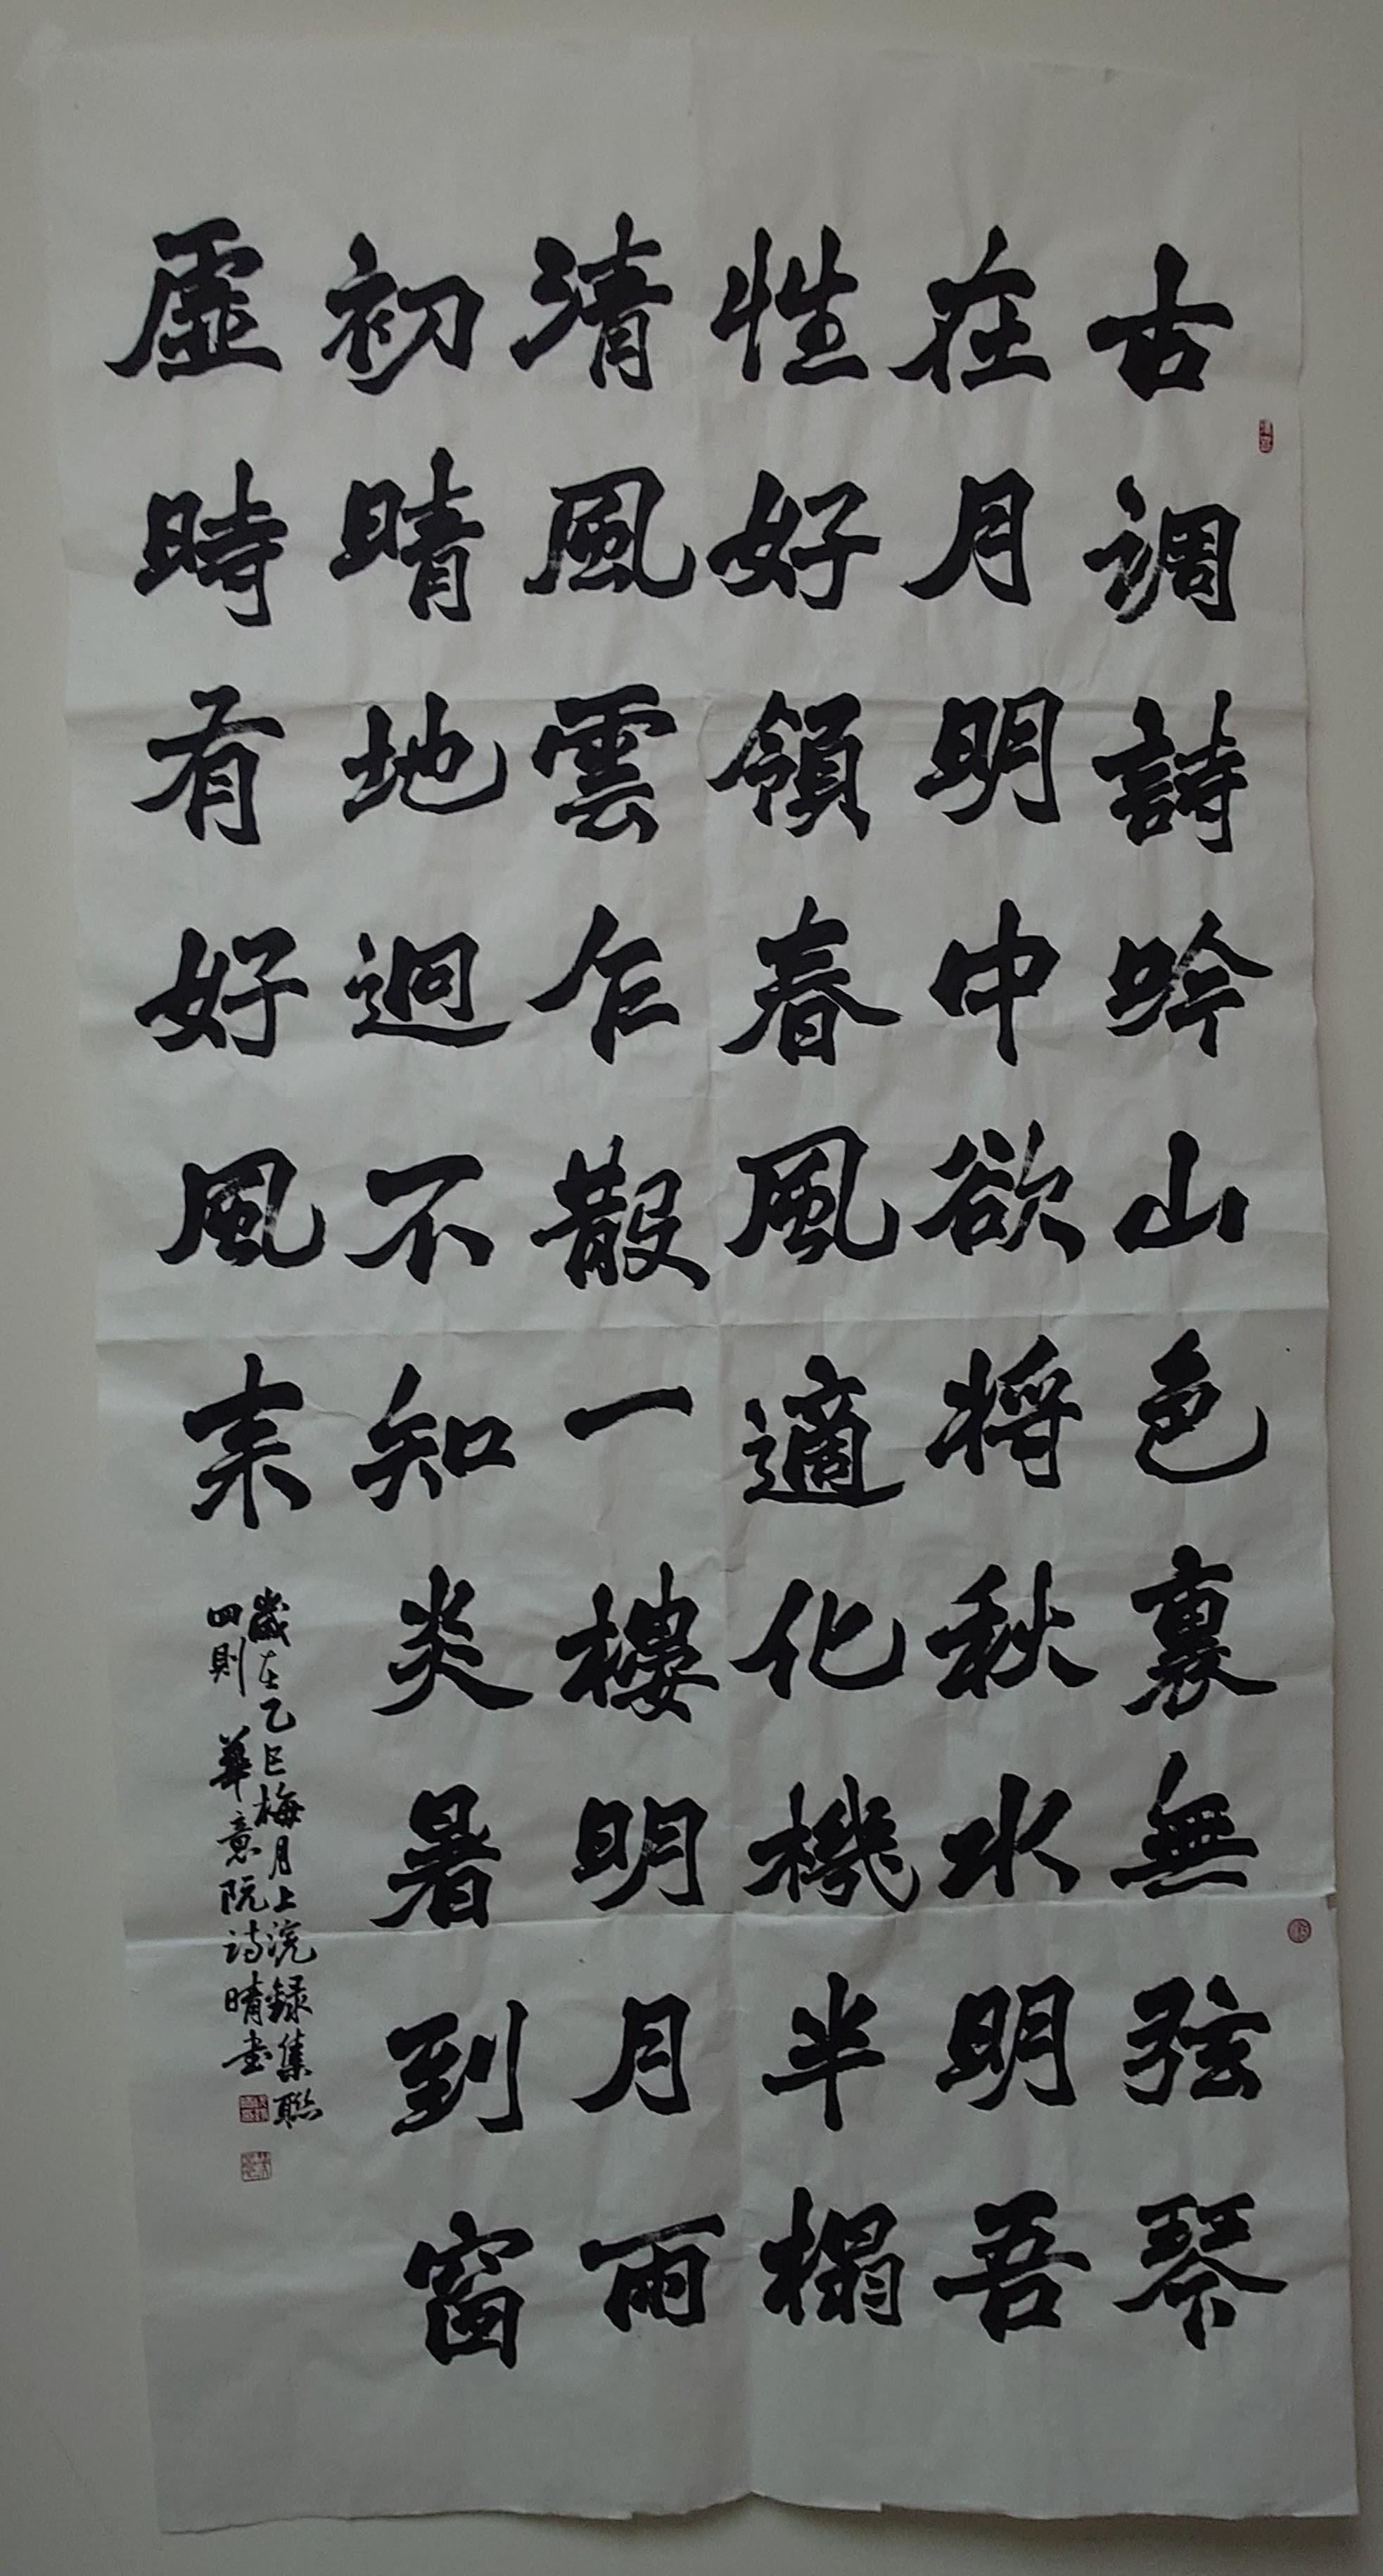 古调詩吟山色裏無弦琴
在月明中欲將秋水明吾
性好領春風適化機半榻
清風雲乍散一樓明月雨
初晴地迥不知炎暑到窗
虛時有好風来
歲在乙巳梅月上浣録集聯
四則 華意阮诗晴书